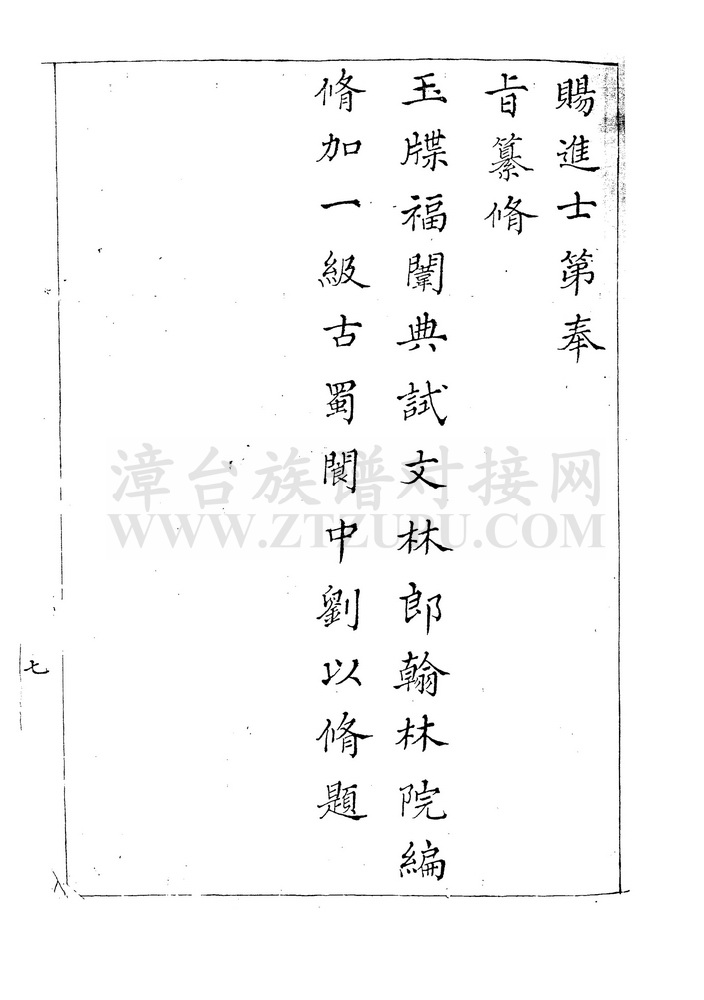 賜進士第奉
旨纂脩
玉牒福闈典試文林郎翰林院編
脩加一級古蜀閬中劉以脩題
七
漳台族谱对接网
WWW.ZTZUPU.COM